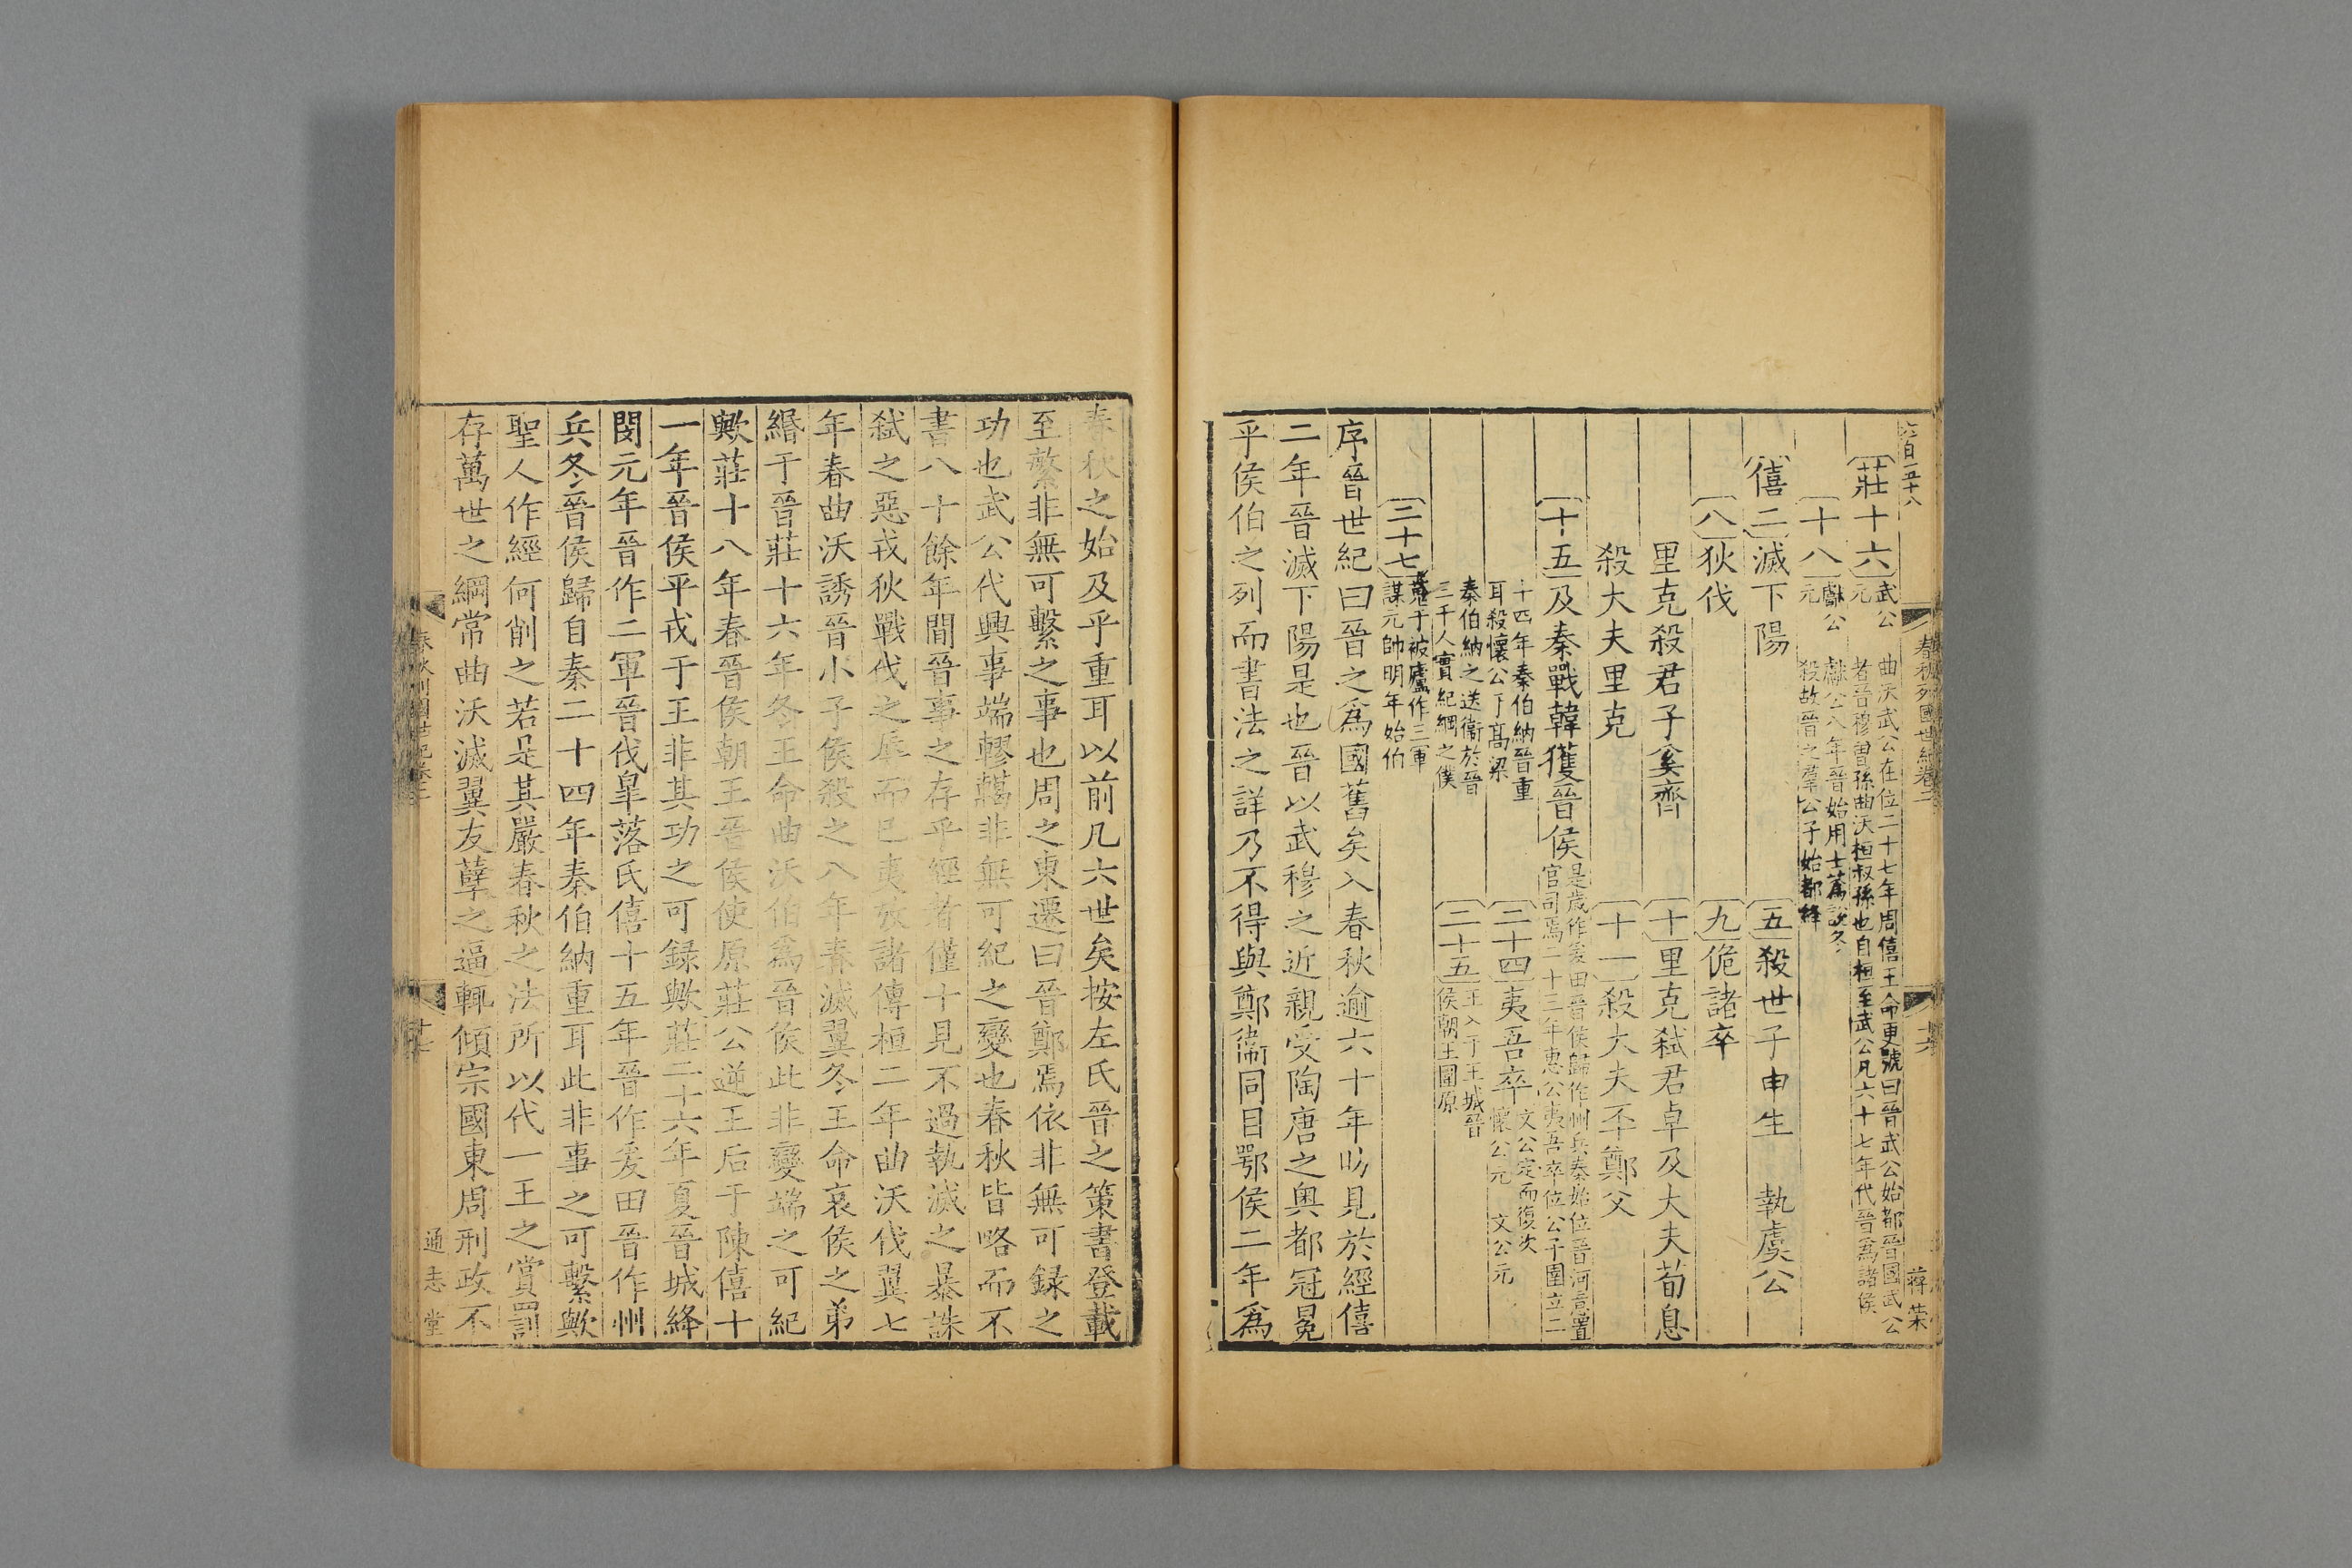 六百五十八
春秋列國世紀卷二
蔣榮
莊十六 武公元 曲沃武公在位二十七年周僖王命更號曰晉武公始都晉國武公
者晉穆曾孫曲沃桓叔孫也自桓至武公凡六十七年代晉爲諸侯
十八 獻公元 獻公八年晉始用士蔿
殺故晉之羣公子始都絳
僖二滅下陽 五殺世子申生 執虞公
八狄伐 九佹諸卒
里克殺君子奚齊 十里克弑君卓及大夫荀息
殺大夫里克 十一殺大夫㔻鄭父
十五及秦戰韓獲晉侯 是歲作爰田晉侯歸作州兵秦始位晉河意置
官司焉二十三年惠公夷吾卒位公子圉立二
十四年秦伯納晉重
耳殺懷公于高梁 二十四夷吾卒 文公定而復次
懷公元 文公元
秦伯納之送衞於晉
三千人實紀綱之僕 二十五 王入于王城晉
侯朝王圍原
二十七 蒐于被廬作三軍
謀元帥明年始伯
序晉世紀曰晉之爲國舊矣入春秋逾六十年昉見於經僖
二年晉滅下陽是也晉以武穆之近親受陶唐之奧都冠冕
乎侯伯之列而書法之詳乃不得與鄭衞同目鄂侯二年爲
春秋之始及乎重耳以前凡六世矣按左氏晉之策書登載
至繁非無可繫之事也周之東遷曰晉鄭焉依非無可録之
功也武公代興事端轇轕非無可紀之變也春秋皆略而不
書八十餘年間晉事之存乎經者僅十見不過執滅之暴誅
弑之惡戎狄戰伐之辱而已夷攷諸傳桓二年曲沃伐翼七
年春曲沃誘晉小子侯殺之八年春滅翼冬王命哀侯之弟
緡于晉莊十六年冬王命曲沃伯爲晉侯此非變端之可紀
歟莊十八年春晉侯朝王晉侯使原莊公逆王后于陳僖十
一年晉侯平戎于王非其功之可録歟莊二十六年夏晉城絳
閔元年晉作二軍晉伐臯落氏僖十五年晉作爰田晉作州
兵冬晉侯歸自秦二十四年秦伯納重耳此非事之可繫歟
聖人作經何削之若是其嚴春秋之法所以代一王之賞罰
存萬世之綱常曲沃滅翼友孽之逼輒傾宗國東周刑政不
春秋列國世紀卷二
通志堂